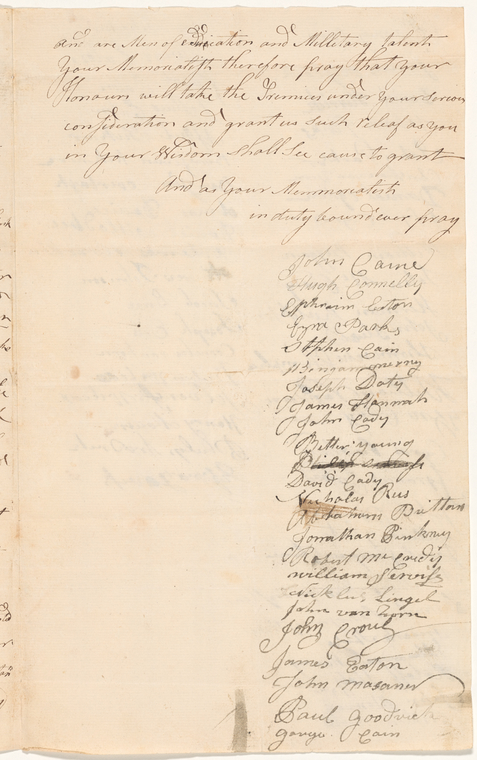 and are Men of edducation and Millitary talents
Your Memorialists therefore pray that your
Honours will take the Premices under your serious
consideration and grant us such releaf as you
in Your Wisdom shall see cause to grant
And as Your Memmorialists
in duty bound ever pray
John Caine
Hugh Connelly
Ephraim Eaton
Ezra Parks
Stephen Cain
Joseph Doty
James Hannah
John Cady
Petter Young
David Cady
Nicholas Rus
Abraham Button
Jonathan Pinkney
Robert Mc Credy
William Servise
Lingel
John van horn
John Croul
James Eaton
John masaner
Paul Goodrich
George Cain